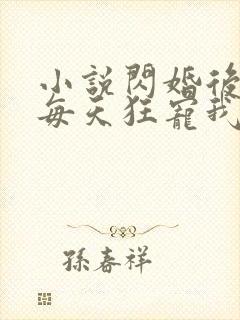 小說閃婚後
每天狂寵我
孫春祥